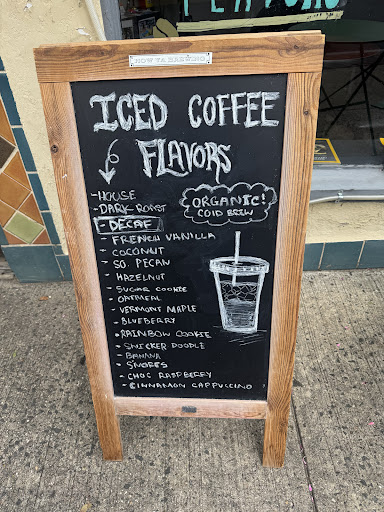 HOW YA BREWING
ICED COFFEE
FLAVORS
ORGANIC!
COLD BREW
- HOUSE
- DARK ROAST
- DECAF
- FRENCH VANILLA
- COCONUT
- SO. PECAN
- HAZELNUT
- SUGAR COOKIE
- OATMEAL
- VERMONT MAPLE
- BLUEBERRY
- RAINBOW COOKIE
- SNICKER DOODLE
- BANANA
- S'MORES
- CHOC RASPBERRY
- CINNAMON CAPPUCCINO